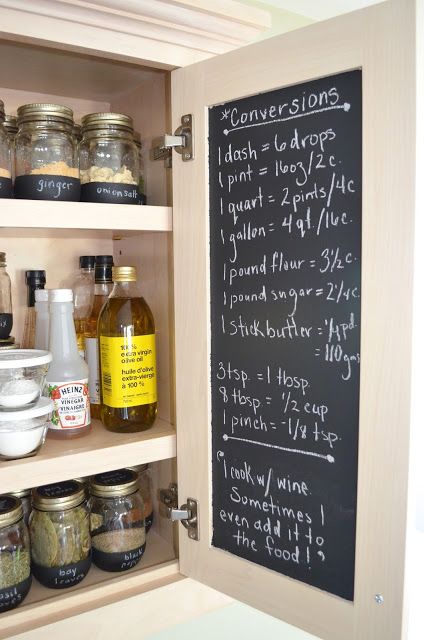 *Conversions
1 dash = 6 drops
1 pint = 16oz/2c.
1 quart = 2 pints/4c
1 gallon = 4 qt./16c.
1 pound flour = 3½c.
1 pound sugar = 2¼c.
1 stick butter = ¼pd.
= 110gms
3 tsp. = 1 tbsp.
8 tbsp. = ½ cup
1 pinch = -1/8 tsp.
"I cook w/ wine.
Sometimes I
even add it to
the food!"
ginger
onion salt
100%
extra virgin
olive oil
huile d'olive
extra-vierge
à 100 %
HEINZ
VINEGAR
VINAIGRE
basil
leaves
bay
leaves
black